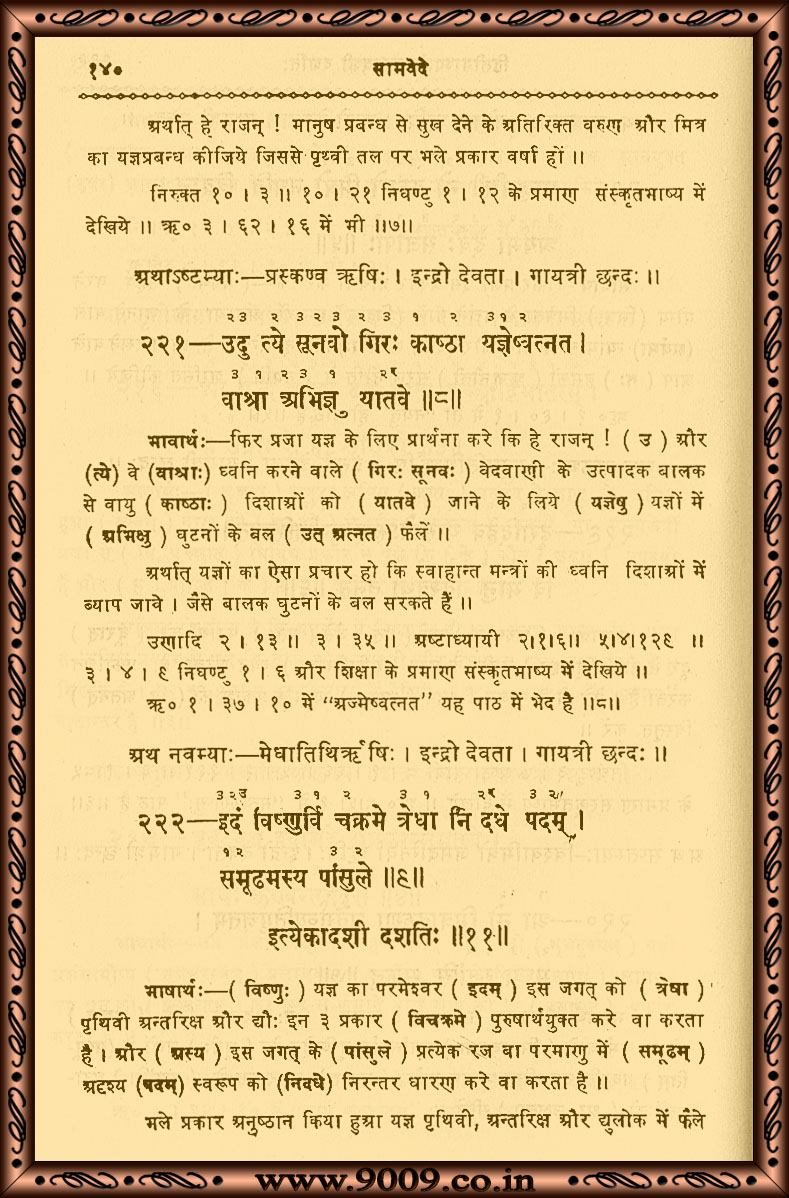 १४० सामवेदे
अर्थात् हे राजन् ! मानुष प्रबन्ध से सुख देने के अतिरिक्त वरुण और मित्र
का यज्ञप्रबन्ध कीजिये जिससे पृथ्वी तल पर भले प्रकार वर्षा हों ॥
निरुक्त १० । ३ ॥ १० । २१ निघण्टु १ । १२ के प्रमाण संस्कृतभाष्य में
देखिये ॥ ऋ० ३ । ६२ । १६ में भी ॥७॥
अथाऽष्टम्याः—प्रस्कण्व ऋषिः । इन्द्रो देवता । गायत्री छन्दः ॥
२३ २ ३ २३ २ ३ १ २ ३१ २
२२१—उदु त्ये सूनवो गिरः काष्ठा यज्ञेष्वत्नत ।
३ १ २ ३ १ २र
वाश्रा अभिज्ञु यातवे ॥८॥
भावार्थः—फिर प्रजा यज्ञ के लिए प्रार्थना करे कि हे राजन् ! ( उ ) और
(त्ये) वे (वाश्राः) ध्वनि करने वाले ( गिरः सूनवः ) वेदवाणी के उत्पादक बालक
से वायु ( काष्ठाः ) दिशाओं को ( यातवे ) जाने के लिये ( यज्ञेषु ) यज्ञों में
( अभिक्षु ) घुटनों के बल ( उत् अत्नत ) फैलें ॥
अर्थात् यज्ञों का ऐसा प्रचार हो कि स्वाहान्त मन्त्रों की ध्वनि दिशाओं में
ब्याप जावे । जैसे बालक घुटनों के बल सरकते हैं ॥
उणादि २ । १३ ॥ ३ । ३५ ॥ अष्टाध्यायी २।१।६॥ ५।४।१२९ ॥
३ । ४ । ९ निघण्टु १ । ६ और शिक्षा के प्रमाण संस्कृतभाष्य में देखिये ॥
ऋ० १ । ३७ । १० में “अज्मेष्वत्नत” यह पाठ में भेद है ॥८॥
अथ नवम्याः—मेधातिथिर्ऋषिः । इन्द्रो देवता । गायत्री छन्दः ॥
३ २उ ३ १ २ ३ १ २र ३ २
२२२—इदं विष्णुर्वि चक्रमे त्रेधा नि दधे पदम् ।
१२ ३ २
समूढमस्य पांसुले ॥९॥
इत्येकादशी दशतिः ॥११॥
भाषार्थः—( विष्णुः ) यज्ञ का परमेश्वर ( इदम् ) इस जगत् को ( त्रेधा )
पृथिवी अन्तरिक्ष और द्यौः इन ३ प्रकार ( विचक्रमे ) पुरुषार्थयुक्त करे वा करता
है । और ( अस्य ) इस जगत् के ( पांसुले ) प्रत्येक रज वा परमाणु में ( समूढम् )
अदृश्य (पदम्) स्वरूप को (निदधे) निरन्तर धारण करे वा करता है ॥
भले प्रकार अनुष्ठान किया हुआ यज्ञ पृथिवी, अन्तरिक्ष और द्युलोक में फैले
www.9009.co.in